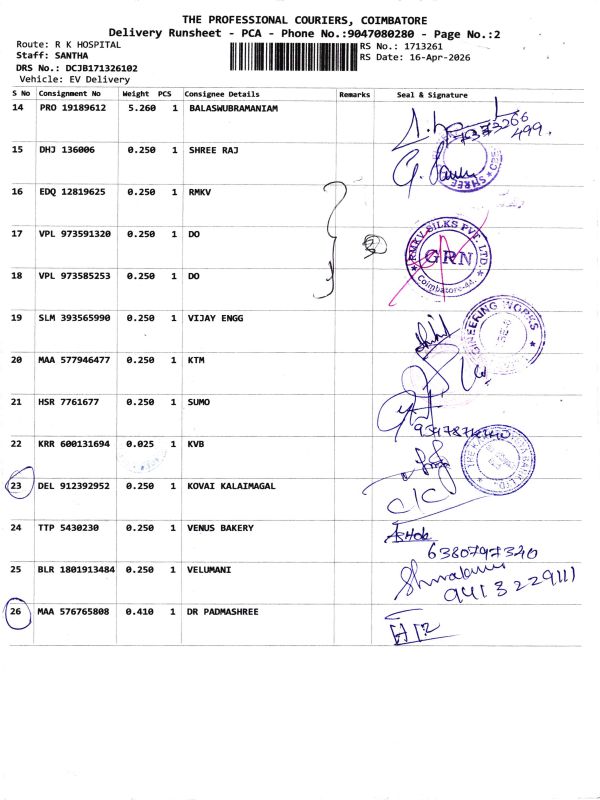 THE PROFESSIONAL COURIERS, COIMBATORE
Delivery Runsheet - PCA - Phone No.:9047080280 - Page No.:2
Route: R K HOSPITAL
Staff: SANTHA
DRS No.: DCJB171326102
Vehicle: EV Delivery
RS No.: 1713261
RS Date: 16-Apr-2026
S No Consignment No Weight PCS Consignee Details Remarks Seal & Signature
14 PRO 19189612 5.260 1 BALASWUBRAMANIAM
499.
15 DHJ 136006 0.250 1 SHREE RAJ
SHREE
16 EDQ 12819625 0.250 1 RMKV
17 VPL 973591320 0.250 1 DO
RMKV SILKS PVT. LTD.
GRN
Coimbatore-44.
18 VPL 973585253 0.250 1 DO
19 SLM 393565990 0.250 1 VIJAY ENGG
ENGINEERING WORKS
20 MAA 577946477 0.250 1 KTM
21 HSR 7761677 0.250 1 SUMO
22 KRR 600131694 0.025 1 KVB
23 DEL 912392952 0.250 1 KOVAI KALAIMAGAL
C/C
24 TTP 5430230 0.250 1 VENUS BAKERY
Ashok
6380797340
25 BLR 1801913484 0.250 1 VELUMANI
9413229111
26 MAA 576765808 0.410 1 DR PADMASHREE